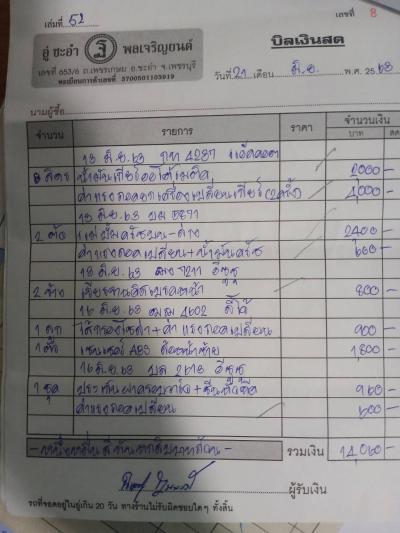 เล่มที่ 52
เลขที่ 8
อู่ ชะอำ พลเจริญยนต์
บิลเงินสด
เลขที่ 653/6 ถ.เพชรเกษม อ.ชะอำ จ.เพชรบุรี
ทะเบียนการค้าเลขที่ 3700501103919
วันที่ 21 เดือน มิ.ย. พ.ศ. 2563
นามผู้ซื้อ
จำนวน รายการ ราคา จำนวนเงิน
บาท สต
13 มิ.ย. 63 4237
ลิตร น้ำมันเกียร์ออโต้เมติค 2000 -
ค่าแรงถอดยกเครื่องเปลี่ยนเกียร์ 4,000 -
13 มิ.ย. 63
2 ตัว แม่ปั๊มครัชบน-ล่าง 2400 -
ค่าแรงถอดเปลี่ยน+น้ำมันครัช 600 -
18 มิ.ย. 63 อีซูซุ
2 ข้าง เจียรจานดิสเบรคหน้า 800 -
16 มิ.ย. 63 4602
1 ลูก + ค่าแรงถอดเปลี่ยน 900 -
1 ตัว เซนเซอร์ ABS ล้อหน้าซ้าย 1,800 -
16 มิ.ย. 63 อีซูซุ
1 ชุด 960 -
ค่าแรงถอดเปลี่ยน 600 -
- หนึ่งหมื่นสี่พันหกสิบบาทถ้วน - รวมเงิน 14,060 -
ผู้รับเงิน
รถที่จอดอยู่ในอู่เกิน 20 วัน ทางร้านไม่รับผิดชอบใดๆ ทั้งสิ้น